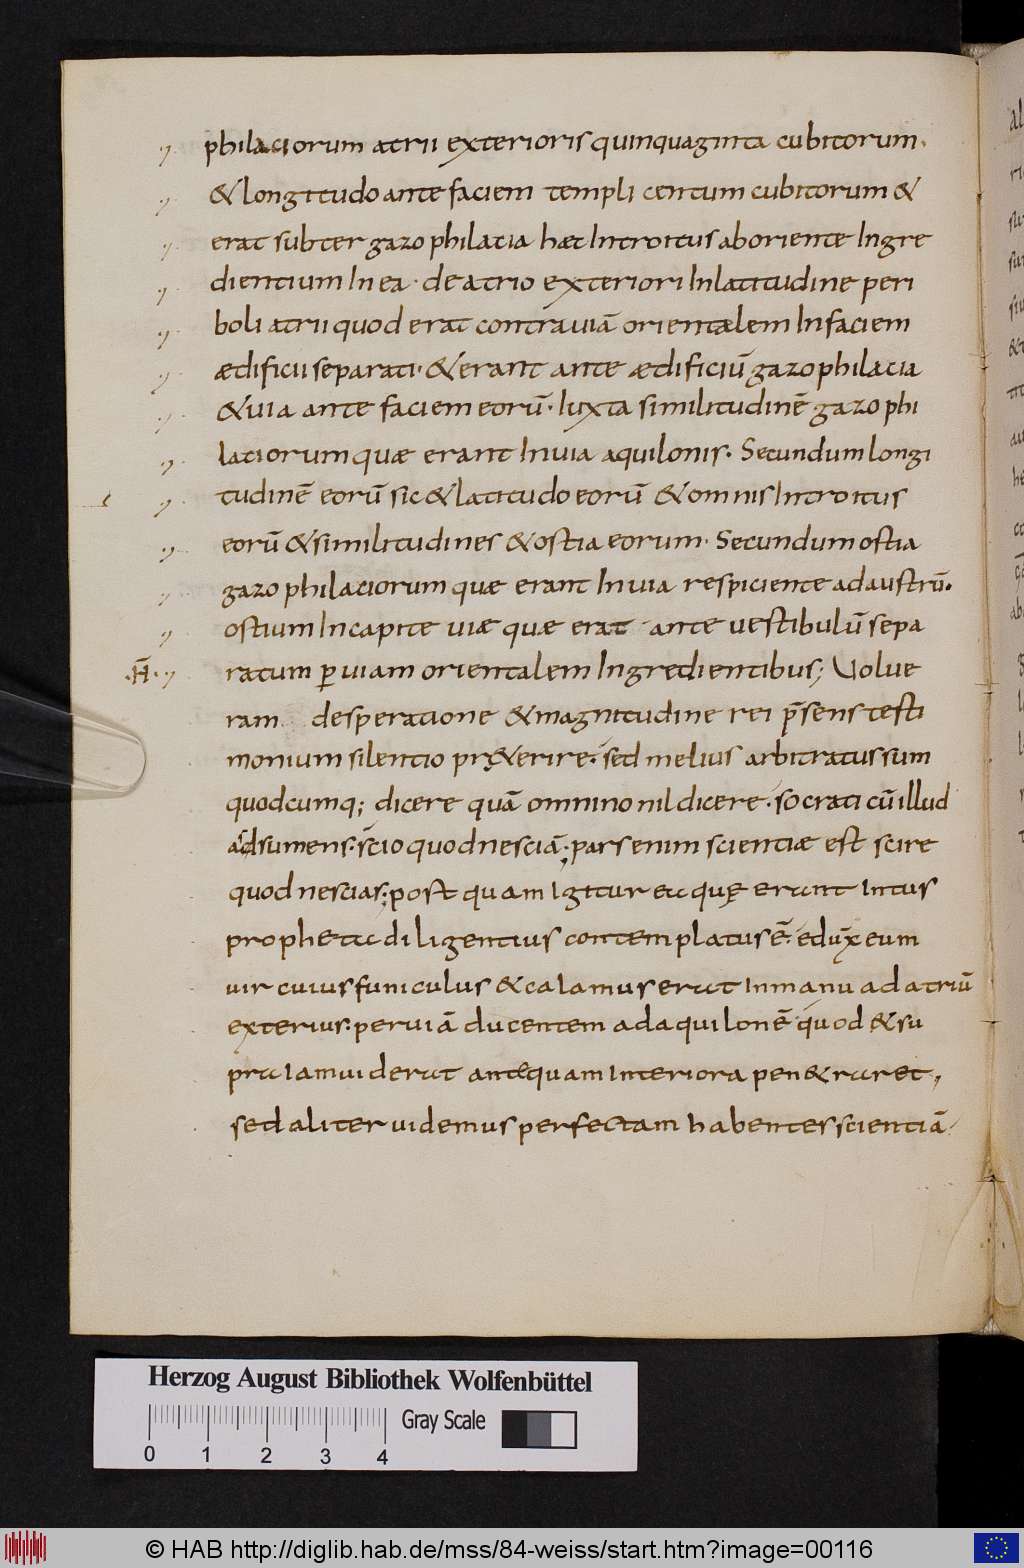 philaciorum atrii exterioris quinquaginta cubitorum.
& longitudo ante faciem templi centum cubitorum &
erat subter gazophilacia haec Introitus ab oriente Ingre
dientium In ea · de atrio exteriori In latitudine peri
boli atrii quod erat contra uiā orientalem In faciem
ædificii separati · & erant ante ædificiū gazophilacia
& uia ante faciem eorū · Iuxta similitudinē gazophi
laciorum quæ erant In uia aquilonis · Secundum longi
tudinē eorū sic & latitudo eorū & omnis Introitus
eorū & similitudines & ostia eorum · Secundum ostia
gazophilaciorum quæ erant In uia respiciente ad austrū ·
ostium In capite uiæ quæ erat ante uestibulū sepa
·H̄· ratum ꝑ uiam orientalem Ingredientibus; Uolue
ram desperatione & magnitudine rei p̄sens testi
monium silentio pręterire · sed melius arbitratus sum
quodcumq; dicere quā omnino nil dicere · socraticū illud
adsumens · scio quod nesciā; pars enim scientiæ est scire
quod nescias; post quam Igitur ea quę erant Intus
propheta diligentius contemplatus ē · eduxit eum
uir cuius funiculus & calamus erat In manu ad atriū
exterius · per uiā ducentem ad aquilonē · quod & su
pra Iam uiderat antequam Interiora pen&raret,
sed aliter uidemus perfectam habentes scientiā ·
Herzog August Bibliothek Wolfenbüttel
Gray Scale
0 1 2 3 4
© HAB http://diglib.hab.de/mss/84-weiss/start.htm?image=00116